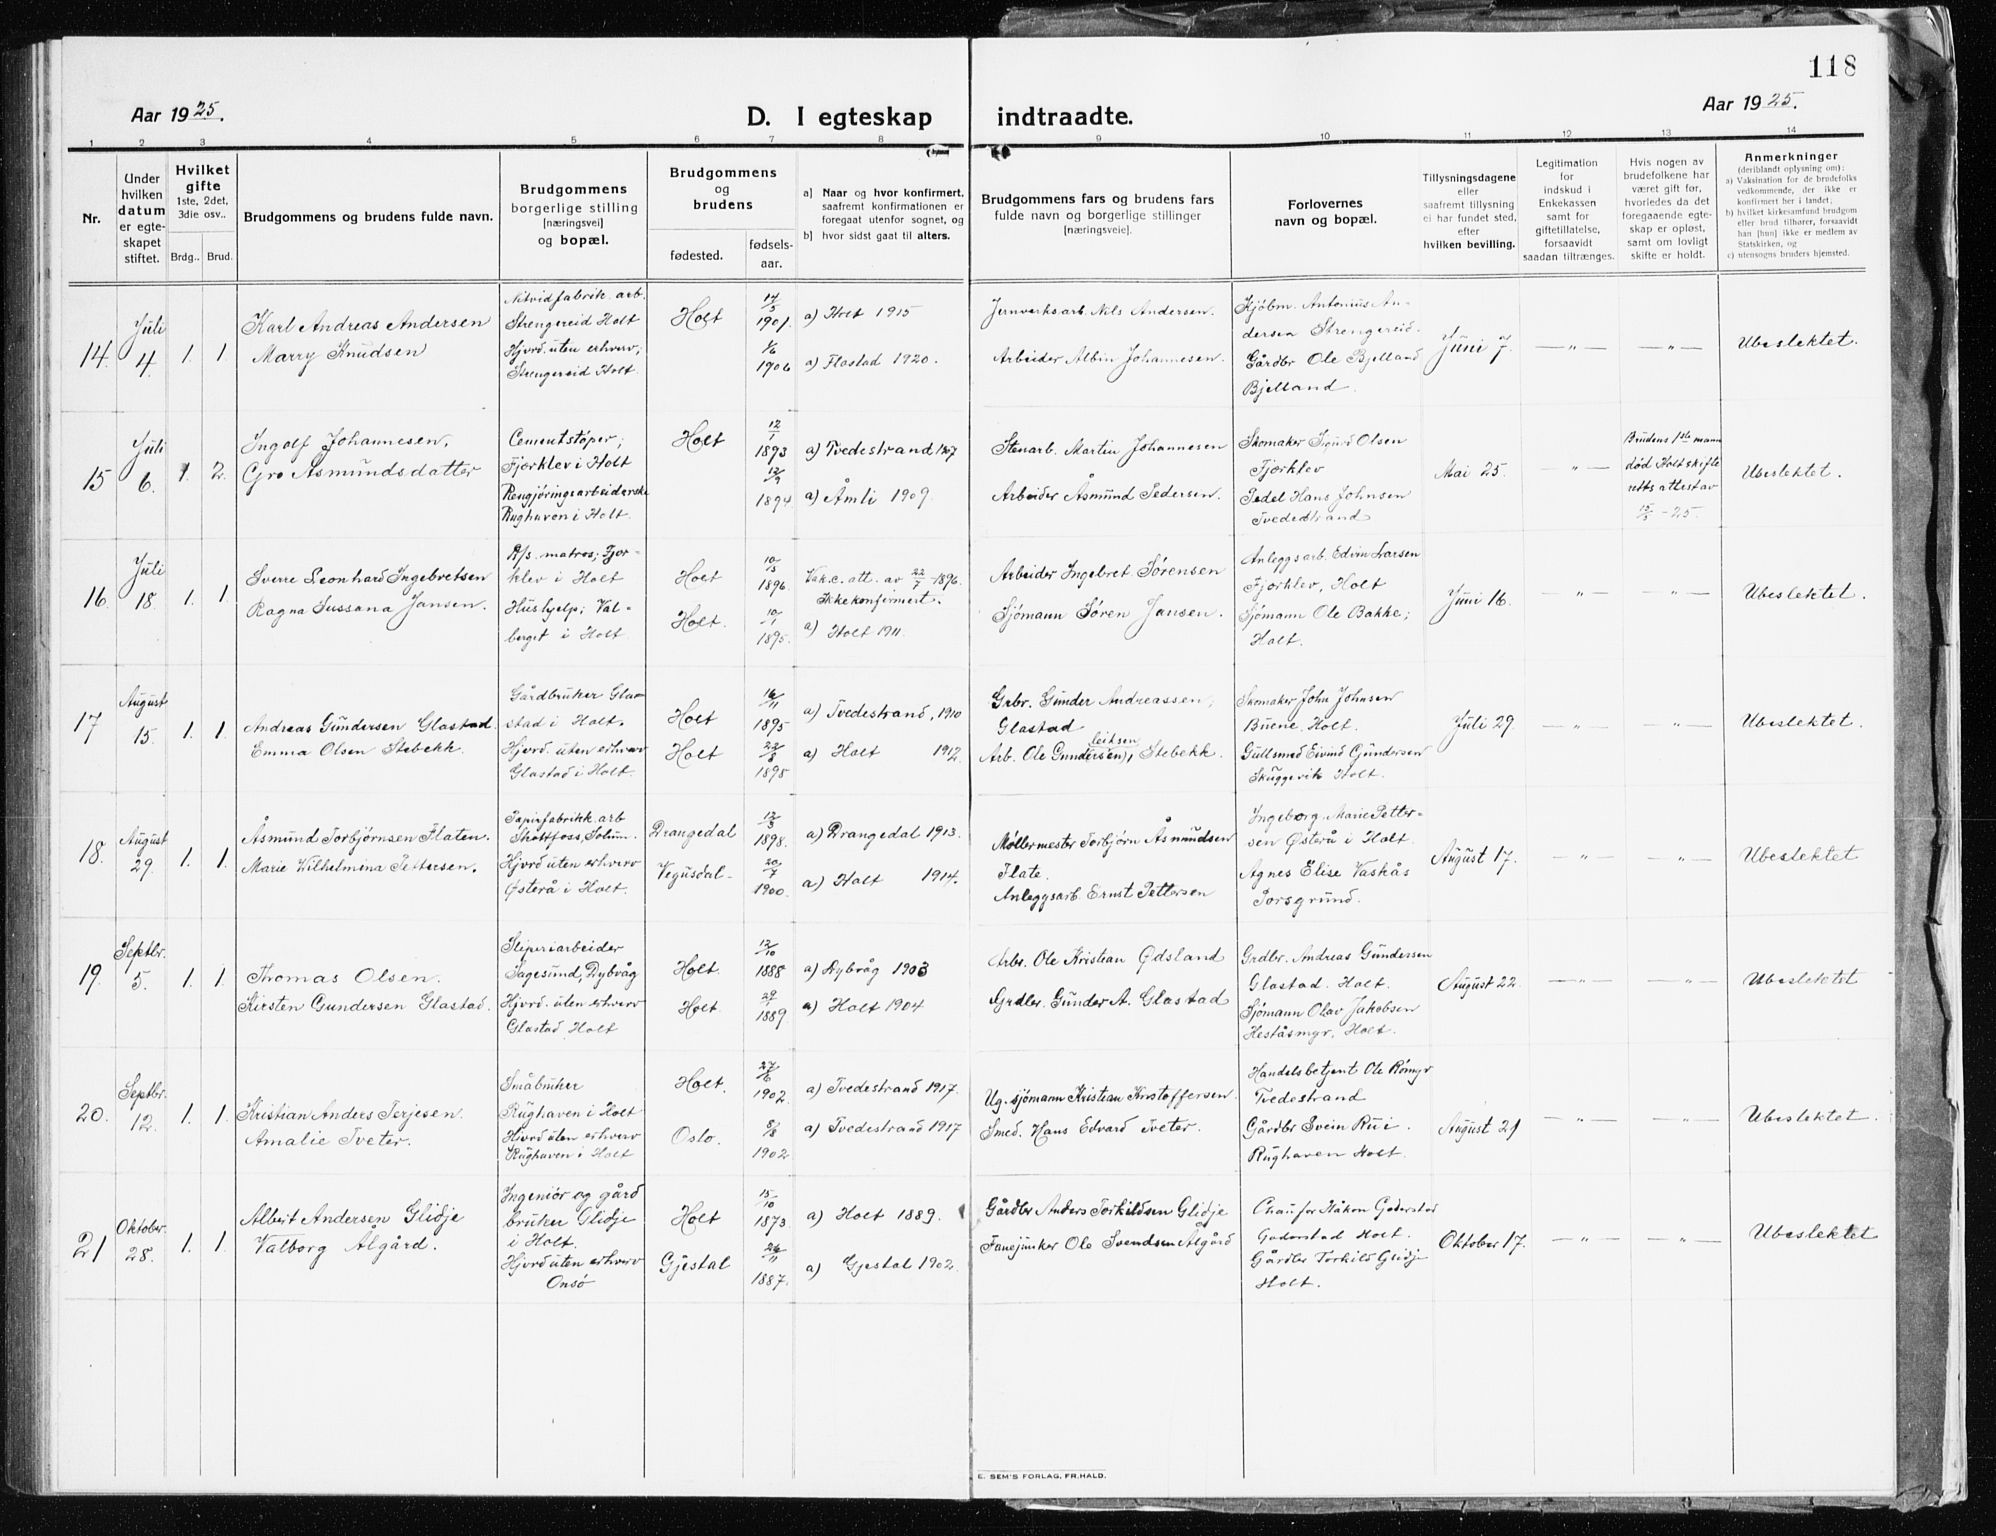 118
Aar 1925.
D. I egteskap indtraadte.
Aar 1925.
1 2 3 4 5 6 7 8 9 10 11 12 13 14
Nr.
Under hvilken datum er egteskapet stiftet.
Hvilket gifte
1ste, 2det, 3die osv..
Brdg.. Brud.
Brudgommens og brudens fulde navn.
Brudgommens borgerlige stilling [næringsvei] og bopæl.
Brudgommens og brudens
fødested.
fødselsaar.
a] Naar og hvor konfirmert, saafremt konfirmationen er foregaat utenfor sognet, og
b] hvor sidst gaat til alters.
Brudgommens fars og brudens fars fulde navn og borgerlige stillinger [næringsveie].
Forlovernes navn og bopæl.
Tillysningsdagene eller saafremt tillysning ei har fundet sted, efter hvilken bevilling.
Legitimation for indskud i Enkekassen samt for giftetillatelse, forsaavidt saadan tiltrænges.
Hvis nogen av brudefolkene har været gift før, hvorledes da det foregaaende egteskap er opløst, samt om lovligt skifte er holdt.
Anmerkninger
(deriblandt oplysning om):
a) Vaksination for de brudefolks vedkommende, der ikke er konfirmert her i landet;
b) hvilket kirkesamfund brudgom eller brud tilhører, forsaavidt han [hun] ikke er medlem av Statskirken, og
c) utensogns bruders hjemsted.
14. Juli 4. 1. 1.
Karl Andreas Andersen
Marry Knudsen
Nitridfabrik. arb.
Strengereid Holt
Hjvrd. uten erhverv;
Strengereid Holt.
Holt
14/5 1901.
1/6 1906
a) Holt 1915
a) Flostad 1920.
Jernverksarb. Nils Andersen.
Arbeider Albin Johannesen.
Kjøbm. Antonius An-
dersen Strengereid.
Gårdbr Ole Bjelland
Bjelland.
Juni 7.
— " —
— " —
Ubeslektet.
15 Juli 6. 1. 2.
Ingolf Johannesen,
Gro Åsmundsdatter
Cementstøper;
Fjorklev i Holt
Rengjøringsarbeiderske
Rughaven i Holt.
Holt
12/1 1893
12/9 1894
a) Tvedestrand 1907
a) Åmli 1909.
Stenarb. Martin Johannesen
Arbeider Åsmund Pedersen.
Skomaker Sigurd Olsen
Fjorklev
Pedel Hans Johnsen
Tvedestrand
Mai 25.
— " —
Brudens 1ste mann
død Holt skifte
retts attest av
15/5 - 25.
Ubeslektet.
16. Juli 18. 1. 1.
Sverre Leonhard Ingebretsen
Ragna Sussana Jansen.
R/s. matros; Fjor-
klev i Holt
Hushjelp; Val-
berget i Holt.
Holt
Holt.
10/5 1896
10/1 1895.
Vak.c. att. av 22/7 1896.
Ikke konfirmert.
a) Holt 1911.
Arbeider Ingebret Sørensen
Sjømann Søren Jansen.
Anleggsarb. Edvin Larsen
Fjorklev, Holt
Sjømann Ole Bakke;
Holt.
Juni 16.
— " —
— " —
Ubeslektet.
17 August 15. 1. 1.
Andreas Gundersen Glastad.
Emma Olsen Stebekk.
Gårdbruker Gla-
stad i Holt.
Hjvrd. uten erhverv
Glastad i Holt.
Holt
Holt
16/11 1895
22/8 1898
a) Tvedestrand, 1910
a) Holt 1912.
Grbr. Gunder Andreassen,
Glastad
Arb. Ole Gundersen), Stebekk.
Skomaker John Johnsen
Buene, Holt.
Gullsmed Eivind Gundersen
Skuggevik Holt.
Juli 29
— " —
— " —
Ubeslektet.
18. August 29. 1. 1.
Åsmund Torbjørnsen Flaten.
Marie Wilhelmina Pettersen.
Papirfabrikk.arb
Skotfoss, Solum.
Hjvrd uten erhverv
Østerå i Holt.
Drangedal
Vegusdal.
12/3 1898.
20/7 1900.
a) Drangedal 1913.
a) Holt 1914.
Møllermester Torbjørn Åsmundsen
Flate.
Anleggsarb. Ernst Pettersen
Ingeborg Marie Petter-
sen Østerå i Holt.
Agnes Elise Vaskås
Porsgrund.
August 17.
— " —
— " —
Ubeslektet
19. Septbr. 5. 1. 1.
Thomas Olsen.
Kirsten Gundersen Glastad.
Sliperiarbeider
Sagesund, Dybvåg
Hjvrd. uten erhverv
Glastad Holt
Holt.
Holt.
12/10 1888
29/1 1889.
a) Dybvåg 1903
a) Holt 1904
Arbr. Ole Kristian Ødsland
Grdbr. Gunder A. Glastad
Grdbr. Andreas Gundersen
Glastad. Holt.
Sjømann Olav Jakobsen
Heståsmyr, Holt.
August 22.
— " —
— " —
Ubeslektet
20. Septbr. 12. 1. 1.
Kristian Anders Terjesen.
Amalie Tveter.
Småbruker
Rughaven i Holt
Hjvrd uten erhverv
Rughaven i Holt
Holt.
Oslo.
27/6 1902.
8/8 1902
a) Tvedestrand 1917.
a) Tvedestrand 1917
Ug. sjømann Kristian Kristoffersen.
Smed. Hans Edvard Tveter.
Handelsbetjent Ole Rømyr
Tvedestrand
Gårdbr Svein Rui.
Rughaven Holt.
August 21
— " —
— " —
Ubeslektet.
21 Oktober. 28. 1. 1.
Albert Andersen Glidje
Valborg Ålgård.
Ingeniør og gård
bruker Glidje
i Holt.
Hjvrd uten erhverv
Onsø
Holt
Gjestal
15/10 1873
26/11 1887.
a) Holt 1889.
a) Gjestal 1902.
Gårdbr Anders Torkildsen Glidje
Fanejunker Ole Svendsen Ålgård
Chaufør Håkon Goderstad
Goderstad Holt.
Gårdbr Torkild Glidje
Holt.
Oktober 17.
— " —
— " —
Ubeslektet
E. SEM'S FORLAG, FR.HALD.